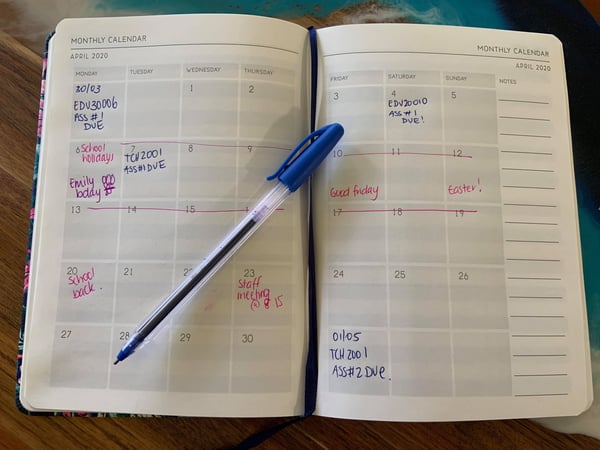 MONTHLY CALENDAR
APRIL 2020
MONDAY TUESDAY WEDNESDAY THURSDAY
30/03
EDU30006
ASS #1
DUE
1
2
6 School
holidays
Emily
7
TCH2001
ASS#1 DUE
8
9
13
14
15
20
School
back.
21
22
23
Staff
meeting
@ 8 15
27
28
29
30
MONTHLY CALENDAR
APRIL 2020
FRIDAY SATURDAY SUNDAY NOTES
3
4
EDU20010
ASS #1
DUE!
5
10
Good friday
11
12
Easter!
17
18
19
24
25
26
01/05
TCH2001
ASS#2 DUE.